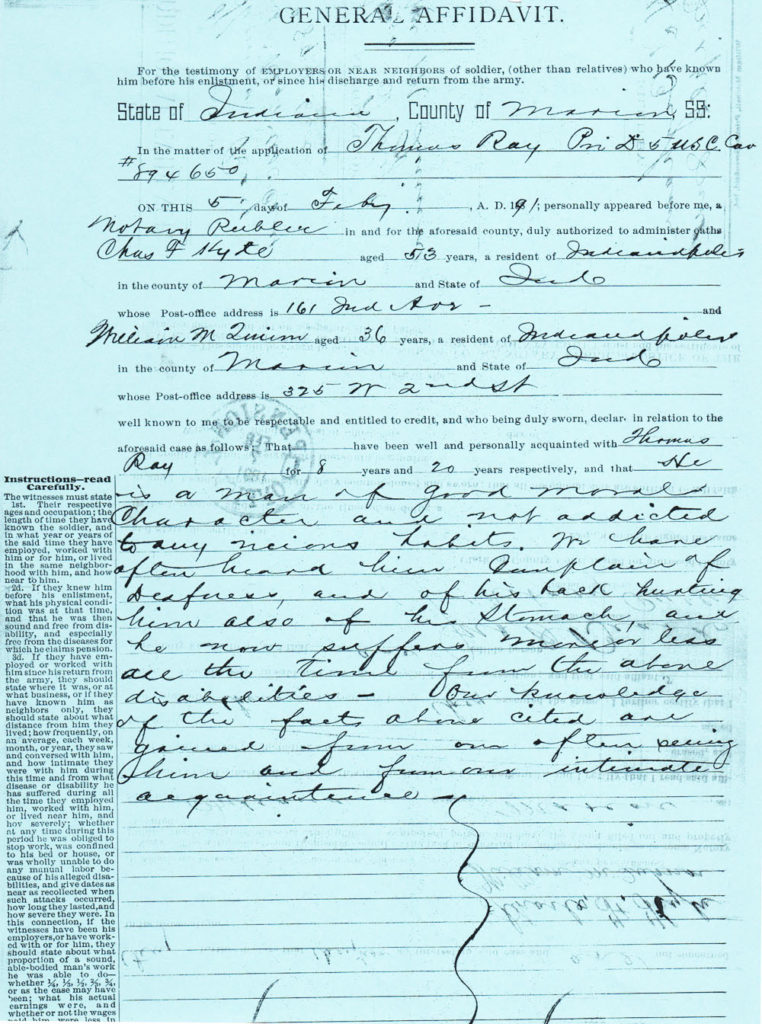 GENERAL AFFIDAVIT.
For the testimony of EMPLOYERS OR NEAR NEIGHBORS of soldier, (other than relatives) who have known
him before his enlistment, or since his discharge and return from the army.
State of Indiana, County of Marion, SS:
In the matter of the application of Thomas Ray Pri D 5 U.S.C. Cav
#894650
ON THIS 5 day of Feby, A. D. 1891; personally appeared before me, a
Notary Public in and for the aforesaid county, duly authorized to administer oaths
Chas F Hyte aged 53 years, a resident of Indianapolis
in the county of Marion and State of Ind
whose Post-office address is 161 Ind Ave - and
William M Quinn aged 36 years, a resident of Indianapolis
in the county of Marion and State of Ind
whose Post-office address is 325 W 2nd St
well known to me to be respectable and entitled to credit, and who being duly sworn, declare in relation to the
aforesaid case as follows: That have been well and personally acquainted with Thomas
Ray for 8 years and 20 years respectively, and that He
is a man of good moral
Character and not addicted
to any vicious habits. We have
often heard him Complain of
Deafness, and of his back hurting
him also of his Stomach, and
he now suffers more or less
all the time from the above
disabilities - Our knowledge
of the facts above cited are
gained from our often seeing
him and from our intimate
acquaintence
Instructions—read
Carefully.
The witnesses must state
1st. Their respective
ages and occupation; the
length of time they have
known the soldier, and
in what year or years of
the said time they have
employed, worked with
him or for him, or lived
in the same neighbor-
hood with him, and how
near to him.
2d. If they knew him
before his enlistment,
what his physical condi-
tion was at that time,
and that he was then
sound and free from dis-
ability, and especially
free from the diseases for
which he claims pension.
3d. If they have em-
ployed or worked with
him since his return from
the army, they should
state where it was, or at
what business, or if they
have known him as
neighbors only, they
should state about what
distance from him they
lived; how frequently, on
an average, each week,
month, or year, they saw
and conversed with him,
and how intimate they
were with him during
this time and from what
disease or disability he
has suffered during all
the time they employed
him, worked with him,
or lived near him, and
how severely; whether
at any time during this
period he was obliged to
stop work, was confined
to his bed or house, or
was wholly unable to do
any manual labor be-
cause of his alleged disa-
bilities, and give dates as
near as recollected when
such attacks occurred,
how long they lasted, and
how severe they were. In
this connection, if the
witnesses have been his
employers, or have work-
ed with or for him, they
should state about what
proportion of a sound,
able-bodied man's work
he was able to do—
whether
or as the case may have
been; what his actual
earnings were, and
whether or not the wages
paid him were less in